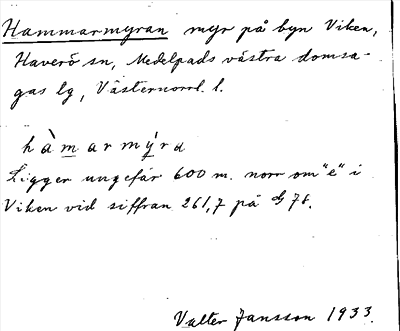 Hammarmyran myr på byn Viken,
Haverö sn, Medelpads västra domsa-
gas lg, Västernorrl. l.
hàmarmýra
Ligger ungefär 600 m. norr om "e" i
Viken vid siffran 261,7 på G 78.
Valter Jansson 1933.